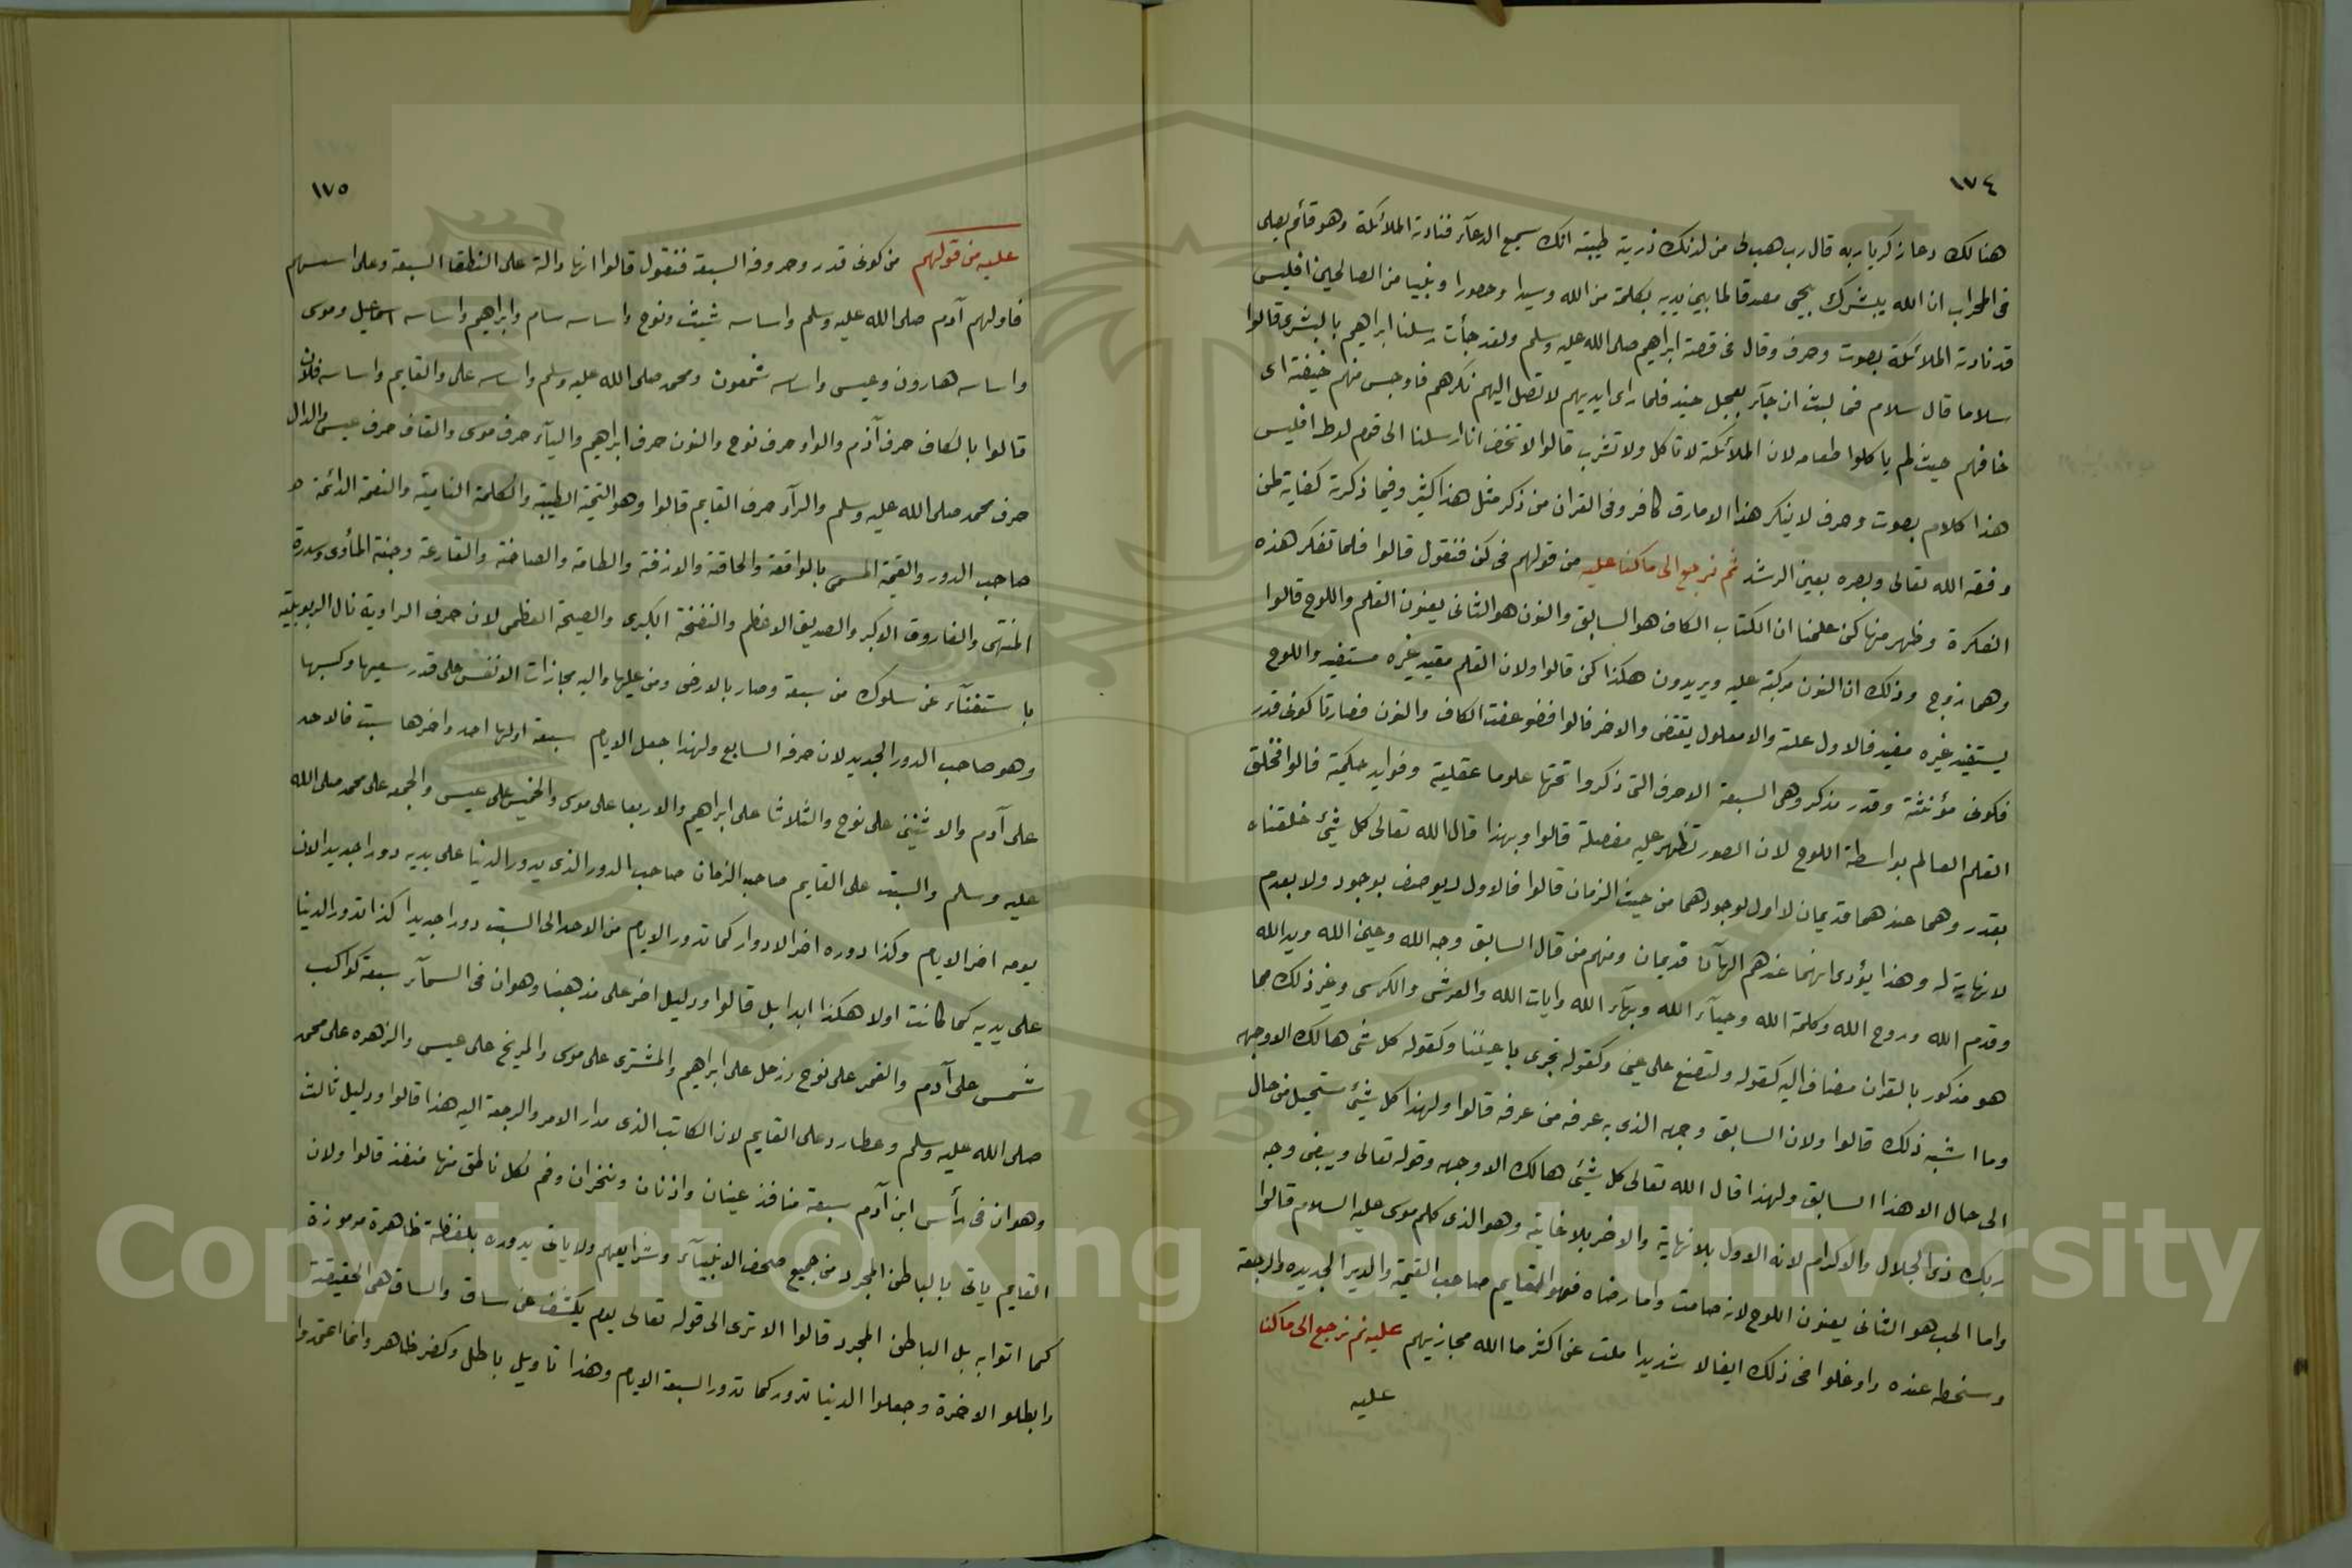 ١٧٤
هنالك دعا زكريا ربه قال رب هب لى من لدنك ذرية طيبة انك سميع الدعآء فنادته الملائكة وهو قائم يصلى
فى المحراب ان الله يبشرك بيحيى مصدقا لما بين يديه بكلمة من الله وسيدا وحصورا ونبيا من الصالحين افليس
قد نادته الملائكة بصوت وحرف وقال فى قصة ابراهيم صلى الله عليه وسلم ولقد جأت رسلنا ابراهيم بالبشرى قالوا
سلاما قال سلام فما لبث ان جآء بعجل حنيذ فلما راى ايديهم لا تصل اليهم نكرهم فاوجس منهم خيفة اى
خافهم حيث لم ياكلوا طعامه لان الملائكة لا تاكل ولا تشرب قالوا لا تخف انا ارسلنا الى قوم لوط افليس
هذا كلام بصوت وحرف لا ينكر هذا الا مارق كافر وفى القران من ذكر مثل هذا كثير وفيما ذكرته كفاية لمن
وفقه الله تعالى وبصره بعين الرشد ثم نرجع الى ما كنا عليه من قولهم فى كن فنقول قالوا فلما تفكر هذه
الفكرة وظهر منها كن علمنا ان الكتاب الكاف هو السابق والنون هو الثانى يعنون القلم واللوح قالوا
وهما زوج وذلك ان النون مركبة عليه ويريدون هكذا كن قالوا ولان القلم مقيد غيره مستفيد واللوح
يستفيد غيره مفيد فالاول علة والا معلول يقتضى والاخر قالوا فضوعفت الكاف والنون فصارتا كونى قدر
فكونى مؤنثة وقدر مذكر وهى السبعة الاحرف التى ذكروا تحتها علوما عقلية وفوايد حكمية قالوا فخلق
القلم العالم بواسطة اللوح لان الصور تظهر عليه مفصلة قالوا وبهذا قال الله تعالى كل شئ خلقناه
بقدر وهما عندهما قديمان لا اول لوجودهما من حيث الزمان قالوا فالاول لا يوصف بوجود ولا بعدم
لا نهاية له وهذا يؤدى انهما عندهم الهآن قديمان ومنهم من قال السابق وجه الله وعين الله ويد الله
وقدم الله وروح الله وكلمة الله وحيآء الله وبهآء الله وايات الله والعرش والكرسى وغير ذلك مما
هو مذكور بالقران مضاف اليه كقوله ولتصنع على عينى وكقوله تجرى باعيننا وكقوله كل شئ هالك الا وجهه
وما اشبه ذلك قالوا ولان السابق وجهه الذى به عرفه من عرفه قالوا ولهذا كل شئ مستحيل من حال
الى حال الا هذا السابق ولهذا قال الله تعالى كل شئ هالك الا وجهه وقوله تعالى ويبقى وجه
ربك ذى الجلال والاكرام لانه الاول بلا نهاية والاخر بلا غاية وهو الذى كلم موسى عليه السلام قالوا
واما الحب هو الثانى يعنون اللوح لانه صامت واما رضاه فهو القايم صاحب القيمة والدير الجديده والرجعة
وسخطه عنده واوغلوا فى ذلك ايغالا شديدا ملت عن اكثر ما الله مجازيهم عليه ثم نرجع الى ما كنا
عليه
١٧٥
عليه من قولهم من كونى قدر وحروفه السبعة فنقول قالوا انها دالة على النطقا السبعة وعلى اسسهم
فاولهم آدم صلى الله عليه وسلم واساسه شيث ونوح واساسه سام وابراهيم واساسه اسماعيل وموسى
واساسه هارون وعيسى واساسه شمعون ومحمد صلى الله عليه وسلم واساسه على والقايم واساسه فلان
قالوا بالكاف حرف آدم والواو حرف نوح والنون حرف ابراهيم واليآء حرف موسى والقاف حرف عيسى والدال
حرف محمد صلى الله عليه وسلم والرآء حرف القايم قالوا وهو التحية الطيبة والكلمة النامية والنعمة الدائمة
صاحب الدور والقيمة المسمى بالواقعة والحاقة والازفة والطامة والصاخة والقارعة وجنة المأوى وسدرة
المنتهى والفاروق الاكبر والصديق الاعظم والنفخة الكبرى والصيحة العظمى لان حرف الراوية نال الربوبية
باستغنآء عن سلوك من سبعة وصار بالارض ومن عليها واليه مجازات الانفس على قدر سعيها وكسبها
وهو صاحب الدور الجديد لان حرفه السابع ولهذا جعل الايام سبعة اولها احد واخرها سبت فالاحد
على آدم والاثنين على نوح والثلاثا على ابراهيم والاربعا على موسى والخميس على عيسى والجمعه على محمد صلى الله
عليه وسلم والسبت على القايم صاحب الزمان صاحب الدور الذى يدور الدنيا على يديه دورا جديدا لان
يومه اخر الايام وكذا دوره اخر الادوار كما تدور الايام من الاحد الى السبت دورا جديدا كذا تدور الدنيا
على يديه كما كانت اولا هكذا ابدا بل قالوا ودليل اخر على مذهبنا وهو ان فى السمآء سبعة كواكب
شمس على آدم والقمر على نوح وزحل على ابراهيم والمشترى على موسى والمريخ على عيسى والزهره على محمد
صلى الله عليه وسلم وعطارد على القايم لان الكاتب الذى مدار الامر والرجعة اليه هذا قالوا ودليل ثالث
وهو ان فى رأس ابن آدم سبعة منافذ عينان واذنان ومنخران وفم لكل ناطق منها منفذ قالوا ولان
القايم ياتى بالباطن المجرد من جميع صحف الانبيآء وشرايعهم ولا ياتى بدوره بلفظة ظاهرة مرموزة
كما اتوا به بل الباطن المجرد قالوا الا ترى الى قوله تعالى يوم يكشف عن ساق والساق هى الحقيقة
وابطلو الاخرة وجعلوا الدنيا تدور كما تدور السبعة الايام وهذا تاويل باطل وكفر ظاهر وانما اعتمدوا
Copyright © King Saud University
1957